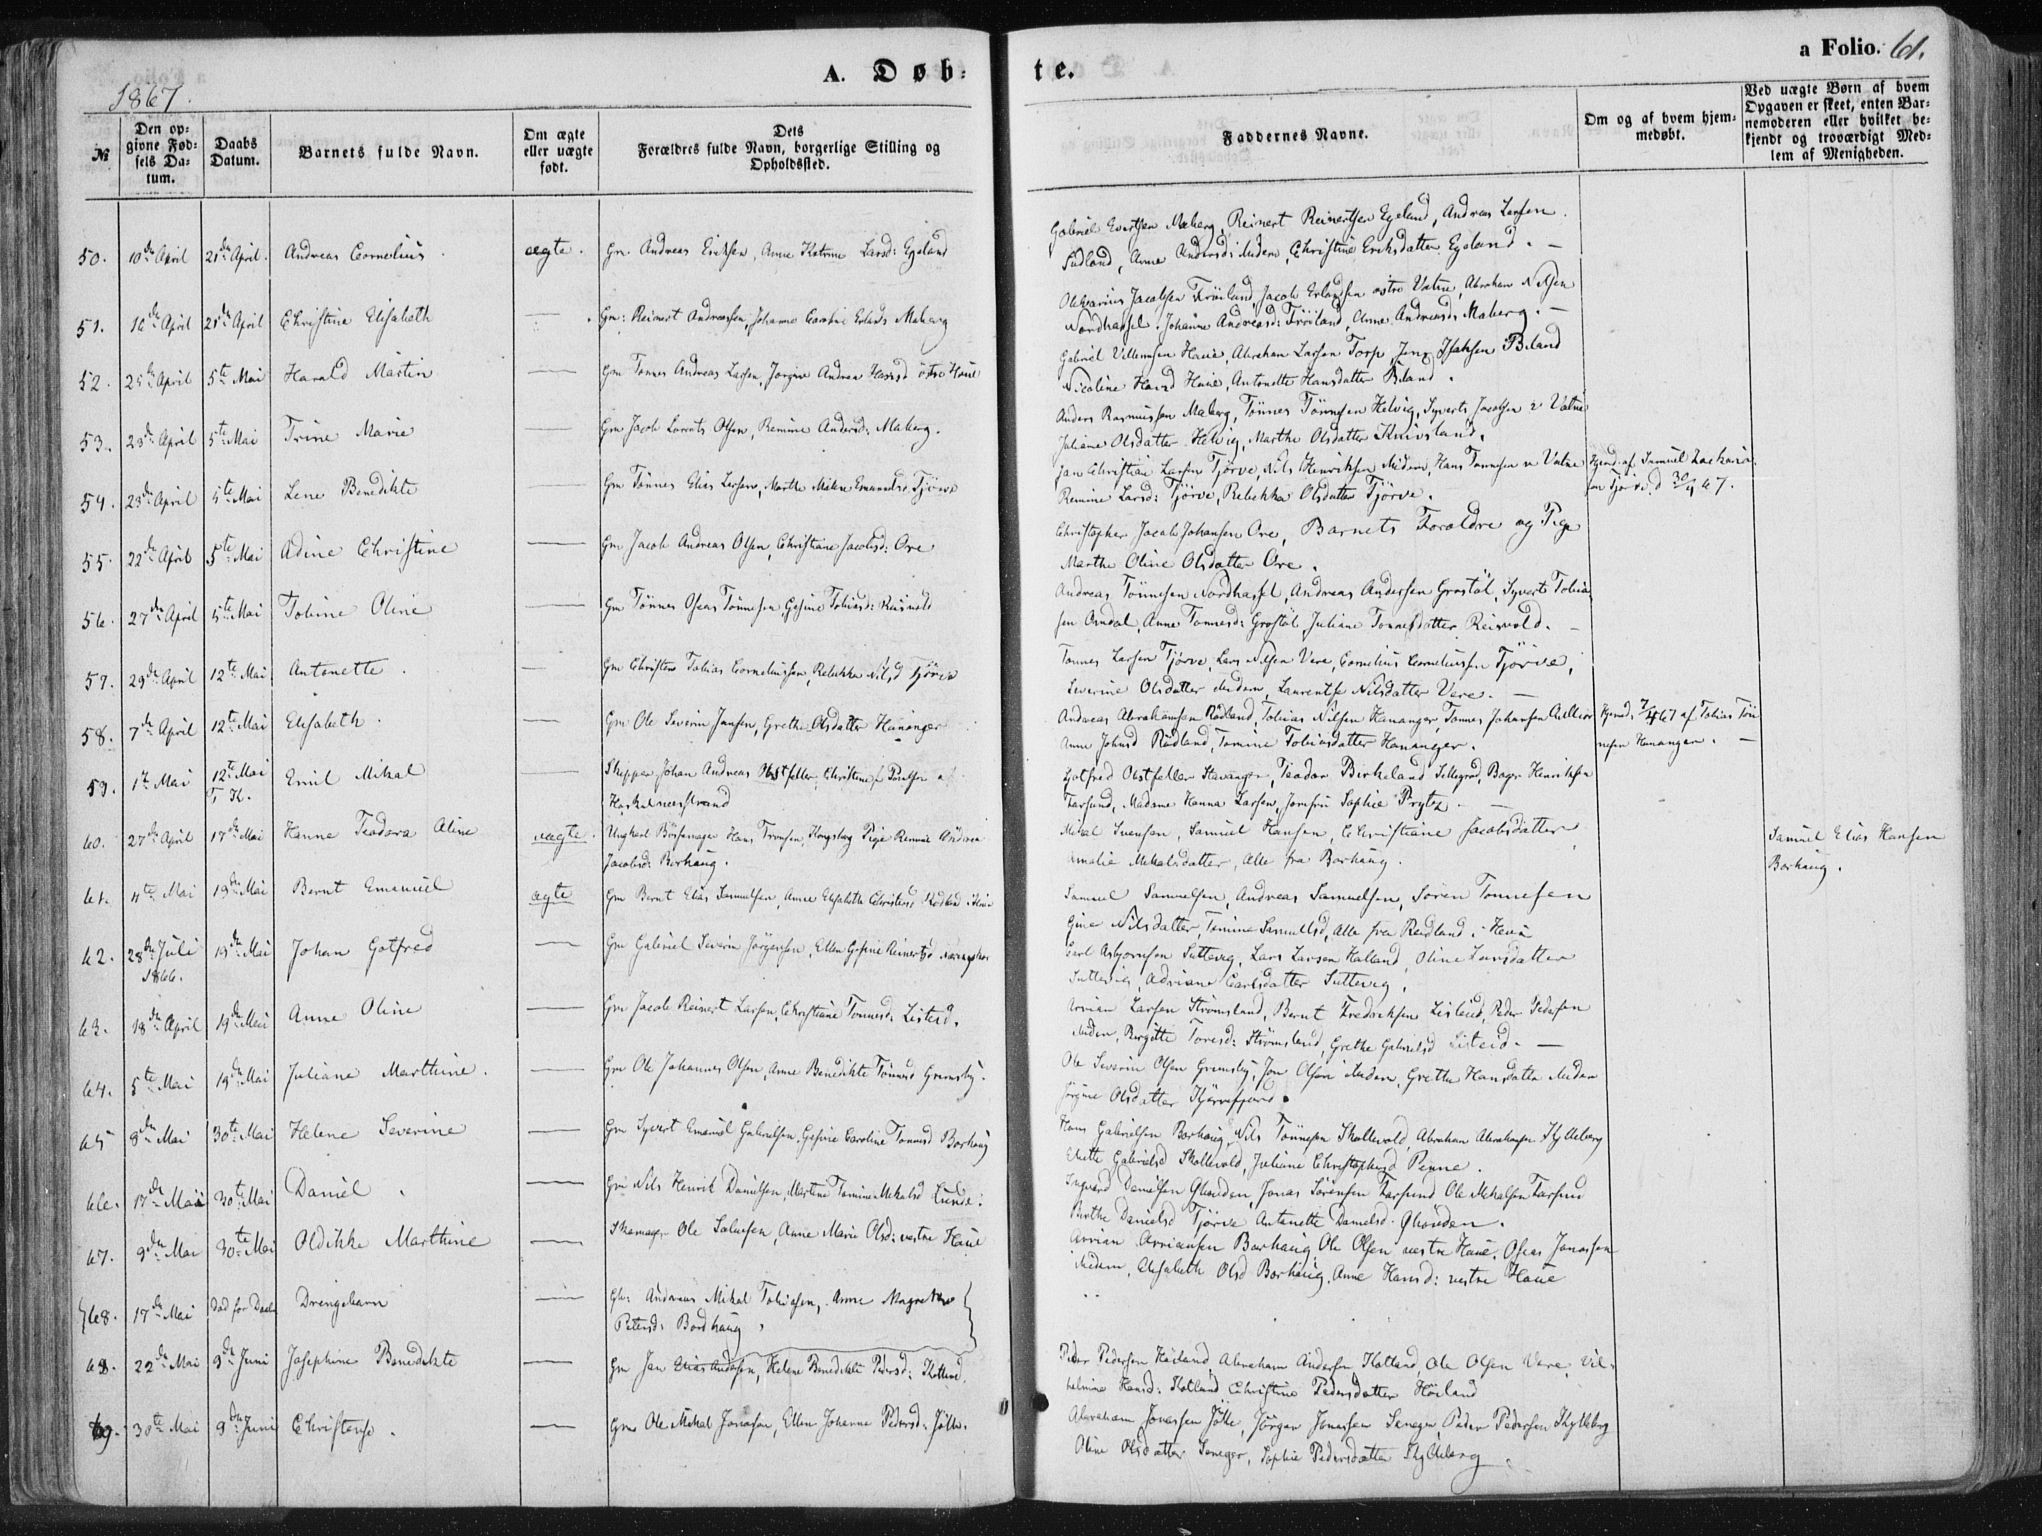 A. Døb-
te.
a Folio. 61.
1867.
№
Den op-
givne Fød-
sels Da-
tum.
Daabs
Datum.
Barnets fulde Navn.
Om ægte
eller uægte
født.
Dets
Forældres fulde Navn, borgerlige Stilling og
Opholdssted.
Faddernes Navne.
Om og af hvem hjem-
medøbt.
Ved uægte Børn af hvem
Opgaven er skeet, enten Bar-
nemoderen eller hvilket be-
kjendt og troværdigt Med-
lem af Menigheden.
50. 10de April 21de April. Andreas Cornelius ægte. Gm. Andreas Eriksen, Anne Katrine Larsd: Egeland
Gabriel Evertsen Maberg, Reinert Reinertsen Egeland, Andreas Larsen
Sudland, Anne Andersd: ibidem, Christine Eriksdatter Egeland. —
51. April 21de April Christine Elisabeth — Gm: Reinert Andreassen, Johanne Caroline Maberg
Jacobsen Fröiland, Jacob Erlandsen østre Vatne, Abraham Nilsen
Nordhassel, Johanne Andreasd: Fröiland, Anne Andreasd: Maberg. —
52. 25de April 5te Mai Harald Martin — Gm Tønnes Andreas Larsen, Jorgine Andrea Hansd østre Haue
Gabriel Villumsen Haue, Abraham Larsen Torp, Jens Isaksen Biland
Nicoline Hansd Haue, Antonette Hansdatter Biland.
53. 23de April 5te Mai Trine Marie — Gm Jacob Lorents Olsen, Remine Andersd: Maberg.
Anders Rasmussen Maberg, Tönnes Tönnesen Helvig, Syverts Jacobsen v Vatne
Juliane Olsdatter Helvig, Marthe Olsdatter Knivsland.
54. 23de April 5te Mai Lene Benedikte — Gm Tønnes Elias Larsen, Marthe Malene Emanuelsd Tjörve
Jan Christian Larsen Tjörve, Nils Henriksen ibidem, Hans Tønnesen v Vatne
Remine Larsd: Tjörve, Rebekka Olsdatter Tjörve.
Hjemd. af Samuel Zacharia-
sen Tjörve d 30/4 67.
55. 22de April 5te Mai Adine Christine — Gm Jacob Andreas Olsen, Christiane Jacobsd: Ore
Christopher Jacob Johansen Ore, Barnets Forældre og Pige
Marthe Oline Olsdatter Ore.
56. 27de April 5te Mai Tobine Oline — Gm Tönnes Oseas Tönnesen, Gesine Tobiasd: Reisvold
Andreas Tönnesen Nordhassel, Andreas Andersen Grostöl, Syvert Tobia-
sen Omdal, Anne Tønnesd: Grostöl, Juliane Tønnesdatter Reisvold. —
57. 29de April 12te Mai Antonette. — Gm Christen Tobias Corneliussen, Rebekka Nilsd Tjörve
Tønnes Larsen Tjörve, Lars Nilsen Vere, Cornelius Corneliussen Tjörve,
Severine Olsdatter ibidem, Laurentse Nilsdatter Vere. —
58. 7de April 12te Mai Elisabeth. — Gm Ole Severin Jansen, Grethe Olsdatter Hananger
Andreas Abrahamsen Rødland, Tobias Nilsen Hananger, Tønnes Johansen
Anne Johnsd Rødland, Tomine Tobiasdatter Hananger.
Hjemd: 7/4 67 af Tobias Tön-
nesen Hananger. —
59. 1te Mai 12te Mai Emil Mikal — Skipper Johan Andreas Obstfelder, Christine f Poulsen af
F K.
Gotfred Obstfelder Stavanger, Teodor Birkeland Henriksen
Farsund, Madame Hanna Larsen, Jomfru Sophie Prytz. —
60. 27de April 17de Mai Hanne Teodora Aline uægte. Ungkarl Börsemager Hans Kongsberg Pige Remine Andrea
Jacobsd: Borhaug.
Mikal Svensen, Samuel Hansen, Christiane Jacobsdatter,
Amalie Mikalsdatter, Alle fra Borhaug.
Samuel Elias Hansen
Borhaug.
61. 4te Mai 19de Mai Bernt Emanuel ægte Gm Bernt Elias Samuelsen, Anne Elisabeth Christensd Rødland i Haue
Samuel Samuelsen, Andreas Samuelsen, Sören Tønnesen
Gine Nilsdatter, Tomine Samuelsd, Alle fra Rødland i Haue
62. 28de Juli 19de Mai Johan Gotfred — Gm Gabriel Severin Jørgensen, Ellen Gesine Reinertsd
1866.
Carl Asbjornsen Sutteveg, Lars Larsen Halland, Oline Larsdatter
Sutteveg, Adriane Carlsdatter Sutteveg,
63. 18de April 19de Mai Anne Oline — Gm Jacob Reinert Larsen, Christiane Tönnesd: Listeid.
Arrian Larsen Strömsland, Bernt Fredriksen Listeid, Peder Pedersen
ibidem, Birgitte Toresd: Strömsland, Grethe Gabrielsd Listeid. —
64. 5te Mai 19de Mai Juliane Marthine. — Gm Ole Johannes Olsen, Anne Benedikte Tönnesd Grimsby.
Ole Severin Olsen Grimsby, Jon Olsen ibidem, Grethe Hansdatter ibidem
Jörgine Olsdatter Kjerrefjord.
65 8de Mai 30te Mai Helene Severine — Gm Syvert Emanuel Gabrielsen, Gesine Caroline Tønnesd Borhaug
Hans Gabrielsen Borhaug, Nils Tönnesen Skollevold, Abraham Abrahamsen Kylleberg
Elette Gabrielsd Skollevold, Juliane Christophersd Penne.
66. 17de Mai 30te Mai Daniel — Gm Nils Henrik Danielsen, Martine Tomine Mikalsd Lunde:
Ingvard Danielsen Ghouden, Jonas Sörensen Farsund, Ole Mikalsen Farsund
Berthe Danielsd Tjörve, Antonette Danielsd. Ghouden.
67. 9de Mai 30te Mai Oldikke Marthine — Skomager Ole Salvesen, Anne Marie Olsd: vestre Haue
Arrian Arriansen Borhaug, Ole Olsen vestre Haue, Oseas Jonassen
ibidem, Elisabeth Olsd Borhaug, Anne Hansd: vestre Haue
68. 17de Mai Död for Daab Drengebarn — Gm: Andreas Mikal Tobiasen, Anne Magrethe
Petersd: Bordhaug,
68. 22de Mai 9de Juni Josephine Benedikte — Gm Jan Elias Andersen, Helene Benedikte Pedersd: Kotland.
Peder Pedersen Höiland, Abraham Andersen Kotland, Ole Olsen Vere, Vil-
helmine Hansd: Kotland, Christine Pedersdatter Höiland
69. 30te Mai 9de Juni Christense. — Gm Ole Mikal Jonassen, Ellen Johanne Pedersd: Jölle.
Abraham Jonassen Jölle, Jörgen Jonassen Seneger, Peder Pedersen Kylleberg
Oline Olsdatter Seneger, Sophie Pedersdatter Kylleberg